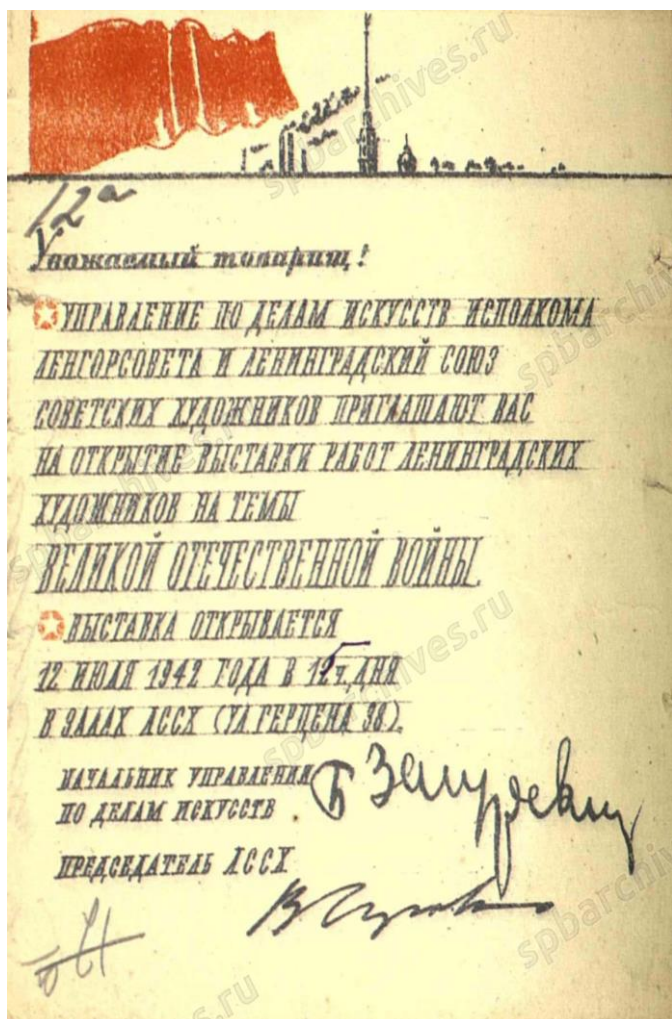 12а
Уважаемый товарищ!
УПРАВЛЕНИЕ ПО ДЕЛАМ ИСКУССТВ ИСПОЛКОМА
ЛЕНГОРСОВЕТА И ЛЕНИНГРАДСКИЙ СОЮЗ
СОВЕТСКИХ ХУДОЖНИКОВ ПРИГЛАШАЮТ ВАС
НА ОТКРЫТИЕ ВЫСТАВКИ РАБОТ ЛЕНИНГРАДСКИХ
ХУДОЖНИКОВ НА ТЕМЫ
ВЕЛИКОЙ ОТЕЧЕСТВЕННОЙ ВОЙНЫ.
ВЫСТАВКА ОТКРЫВАЕТСЯ
12 ИЮЛЯ 1942 ГОДА В Ч. ДНЯ
В ЗАЛАХ ЛССХ (УЛ. ГЕРЦЕНА 38).
НАЧАЛЬНИК УПРАВЛЕНИЯ
ПО ДЕЛАМ ИСКУССТВ
Б Загурский
ПРЕДСЕДАТЕЛЬ ЛССХ
spbarchives.ru